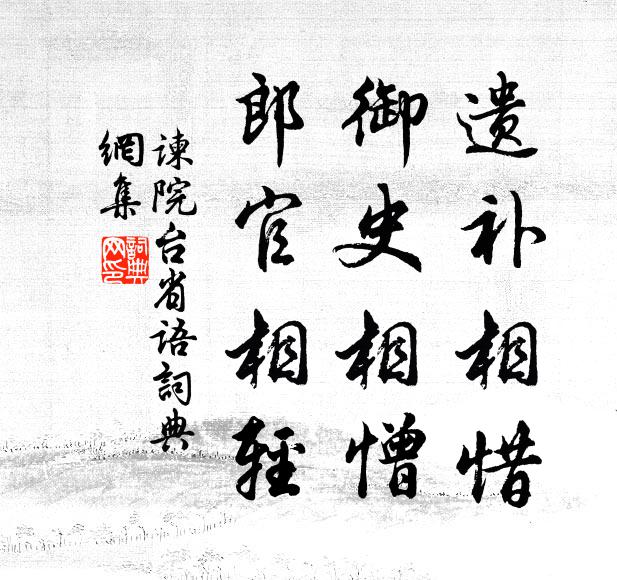 遗补相惜
御史相憎
郎官相轻
諫院台省语詞典
網集
詞典
网印